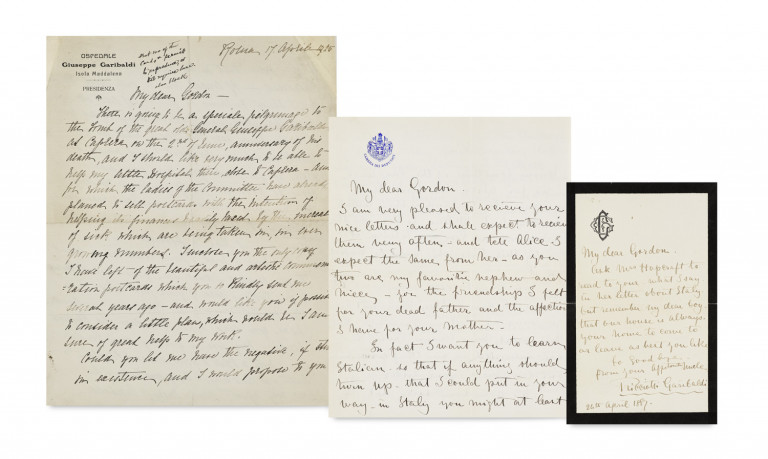 OSPEDALE
Giuseppe Garibaldi
Isola Maddalena
PRESIDENZA
Roma 17 Aprile
My dear Gordon —
There is going to be a speciale pilgrimage to
the tomb of the great old General Giuseppe Garibaldi
at Caprera on the 2nd of June, anniversary of his
death, and I should like very much to be able to
help my little Hospital there close to Caprera - and
for which the ladies of the Committee have already
planed to sell postcards with the intention of
helping its finances by the increase
of sick which are being taken in, in ever
growing numbers. I enclose you the only copy
I have left of the beautiful and artistic commemo-
ration postcards which you so kindly sent me
several years ago - and would like you if possible
to consider a little plan, which would be I am
sure of great help to my work.
Could you let me have the negative, if still
in existence, and I would propose to you
My dear Gordon.
I am very pleased to recieve your
nice letters - and shall expect to recieve
them very often - and tell Alice I
expect the same from her - as you
two are my favorite nephew and
niece - for the friendship I felt
for your dead father and the affection
I have for your Mother -
In fact I want you to learn
Italian - so that if anything should
turn up - that I could put in your
way - in Italy you might at least
My dear Gordon.
Ask Mrs Haycraft to
read to your what I say
in her letter about Italy
but remember my dear boy
that our house is always
your home to come to
or leave as best you like
so good bye
from your affectionate Uncle
Ricciotti Garibaldi
26th April 1887.